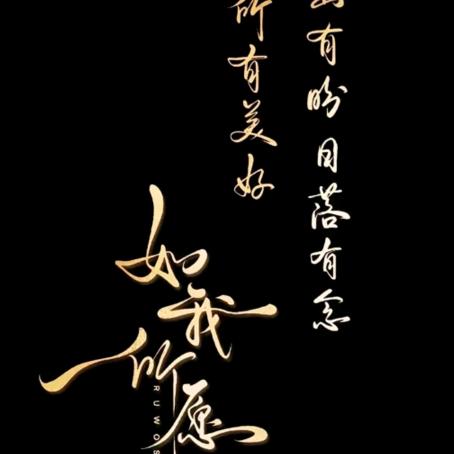 出有盼日落有念
所有美好
如我所愿
RUWOS